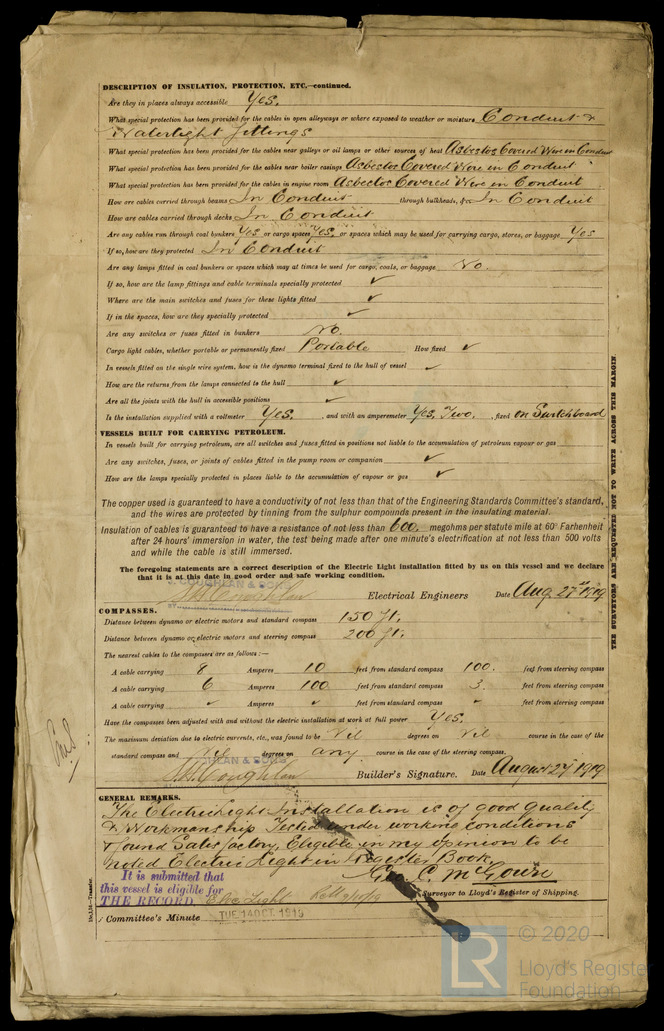 DESCRIPTION OF INSULATION, PROTECTION, ETC.—continued.
Are they in places always accessible Yes.
What special protection has been provided for the cables in open alleyways or where exposed to weather or moisture Conduit &
Watertight fittings
What special protection has been provided for the cables near galleys or oil lamps or other sources of heat Asbestos Covered Wire in Conduit
What special protection has been provided for the cables near boiler casings Asbestos Covered Wire in Conduit
What special protection has been provided for the cables in engine room Asbestos Covered Wire in Conduit
How are cables carried through beams In Conduit through bulkheads, &c. In Conduit
How are cables carried through decks In Conduit
Are any cables run through coal bunkers Yes or cargo spaces Yes, or spaces which may be used for carrying cargo, stores, or baggage Yes
If so, how are they protected In Conduit
Are any lamps fitted in coal bunkers or spaces which may at times be used for cargo, coals, or baggage No.
If so, how are the lamp fittings and cable terminals specially protected ✓
Where are the main switches and fuses for these lights fitted ✓
If in the spaces, how are they specially protected ✓
Are any switches or fuses fitted in bunkers No.
Cargo light cables, whether portable or permanently fixed Portable How fixed ✓
In vessels fitted on the single wire system, how is the dynamo terminal fixed to the hull of vessel ✓
How are the returns from the lamps connected to the hull ✓
Are all the joints with the hull in accessible positions ✓
Is the installation supplied with a voltmeter Yes. , and with an amperemeter Yes, Two, , fixed on Switchboard
VESSELS BUILT FOR CARRYING PETROLEUM.
In vessels built for carrying petroleum, are all switches and fuses fitted in positions not liable to the accumulation of petroleum vapour or gas
Are any switches, fuses, or joints of cables fitted in the pump room or companion ✓
How are the lamps specially protected in places liable to the accumulation of vapour or gas ✓
The copper used is guaranteed to have a conductivity of not less than that of the Engineering Standards Committee's standard,
and the wires are protected by tinning from the sulphur compounds present in the insulating material.
Insulation of cables is guaranteed to have a resistance of not less than 600 megohms per statute mile at 60° Farhenheit
after 24 hours' immersion in water, the test being made after one minute's electrification at not less than 500 volts
and while the cable is still immersed.
The foregoing statements are a correct description of the Electric Light installation fitted by us on this vessel and we declare
that it is at this date in good order and safe working condition.
J. COUGHLAN & SONS
Coughlan Electrical Engineers Date Aug 27 1919
COMPASSES.
Distance between dynamo or electric motors and standard compass 150 ft.
Distance between dynamo or electric motors and steering compass 200 ft.
The nearest cables to the compasses are as follows:—
A cable carrying 8 Amperes 10 feet from standard compass 100. feet from steering compass
A cable carrying 6 Amperes 100 feet from standard compass 3. feet from steering compass
A cable carrying ✓ Amperes ✓ feet from standard compass ✓ feet from steering compass
Have the compasses been adjusted with and without the electric installation at work at full power Yes.
The maximum deviation due to electric currents, etc., was found to be Nil degrees on Nil course in the case of the
standard compass and Nil degrees on any course in the case of the steering compass.
COUGHLAN & SONS
Coughlan Builder's Signature. Date August 27 1919
GENERAL REMARKS.
The Electric Light Installation is of good quality
& Workmanship Tested under working conditions
& found Satisfactory, Eligible in my opinion to be
noted Electric Light in Register Book.
It is submitted that
this vessel is eligible for
THE RECORD. Elec. Light
Surveyor to Lloyd's Register of Shipping.
Committee's Minute TUE 14 OCT. 1919
THE SURVEYORS ARE REQUESTED NOT TO WRITE ACROSS THIS MARGIN
© 2020
Lloyd's Register
Foundation
LR